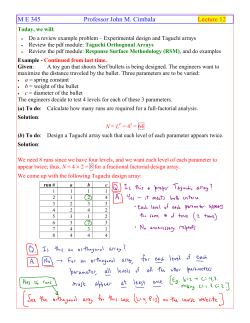 M E 345 Professor John M. Cimbala Lecture 12
Today, we will:
• Do a review example problem – Experimental design and Taguchi arrays
• Review the pdf module: Taguchi Orthogonal Arrays
• Review the pdf module: Response Surface Methodology (RSM), and do examples
Example - Continued from last time.
Given: A toy gun that shoots Nerf bullets is being designed. The engineers want to
maximize the distance traveled by the bullet. Three parameters are to be varied:
• a = spring constant
• b = weight of the bullet
• c = diameter of the bullet
The engineers decide to test 4 levels for each of these 3 parameters.
(a) To do: Calculate how many runs are required for a full-factorial analysis.
Solution:
N = L^P = 4^3 = 64
(b) To do: Design a Taguchi array such that each level of each parameter appears twice.
Solution:
We need 8 runs since we have four levels, and we want each level of each parameter to
appear twice; thus, N = 4 × 2 = 8 for a fractional factorial design array.
We came up with the following Taguchi design array:
run # a b c
1 1 1 1
2 1 2 4
3 2 3 2
4 2 4 2
5 3 1 2
6 3 2 3
7 4 3 4
8 4 4 4
Q Is this a proper Taguchi array?
A Yes – it meets both criteria
• Each level of each parameter appears
the same # of times (2 times)
• No unnecessary repeats
Q Is this an orthogonal array?
A No → For an orthogonal array, for each level of each
parameter, all levels of all the other parameters
must appear at least once
Has 16 runs
See the orthogonal array for this case (L=4, P=3) on the course website